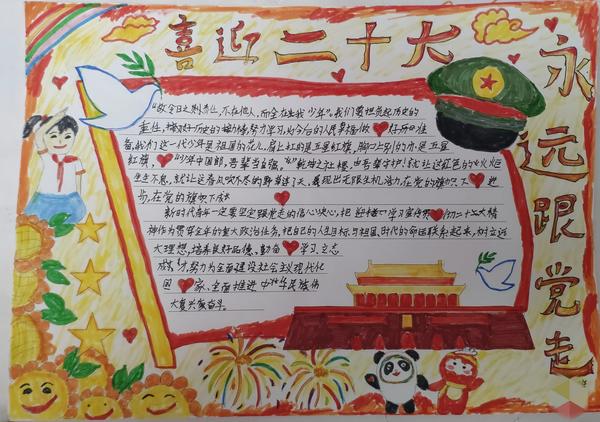 喜迎二十大
永远跟党走
"故今日之责任,不在他人,而全在我少年"。我们要担负起历史的
重任,接好历史的接力棒,努力学习,为今后的人民幸福做好历准
备,我们这一代少年是祖国的花儿,肩上扛的是五星红旗,胸口上别的亦是五星
红旗,少年中国郎,吾辈当自强。乾坤之社稷,也吾辈守护!就让这红色的火焰
生生不息,就让这春风吹不尽的野草连天,展现出无限生机活力,在党的旗帜下进
步,在党的旗帜下成
新时代青年一定要坚定跟党走的信心决心,把迎接学习宣传贯彻二十大精
神作为贯穿全年的重大政治任务,把自己的人生目标与祖国、时代的命运联系起来,树立远
大理想,培养良好品德,勤奋学习,立志
成才,努力为全面建设社会主义现代化
国家、全面推进中华民族伟
大复兴而奋斗。